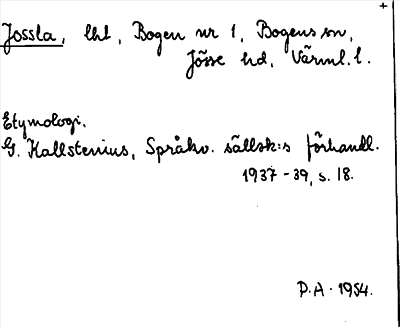 +
Jossla, lhl, Bogen nr 1, Bogens sn,
Jösse hd, Värml. l.
Etymologi.
G. Kallstenius, Språkv. sällsk:s förhandl.
1937-39, s. 18.
P.A. 1954.